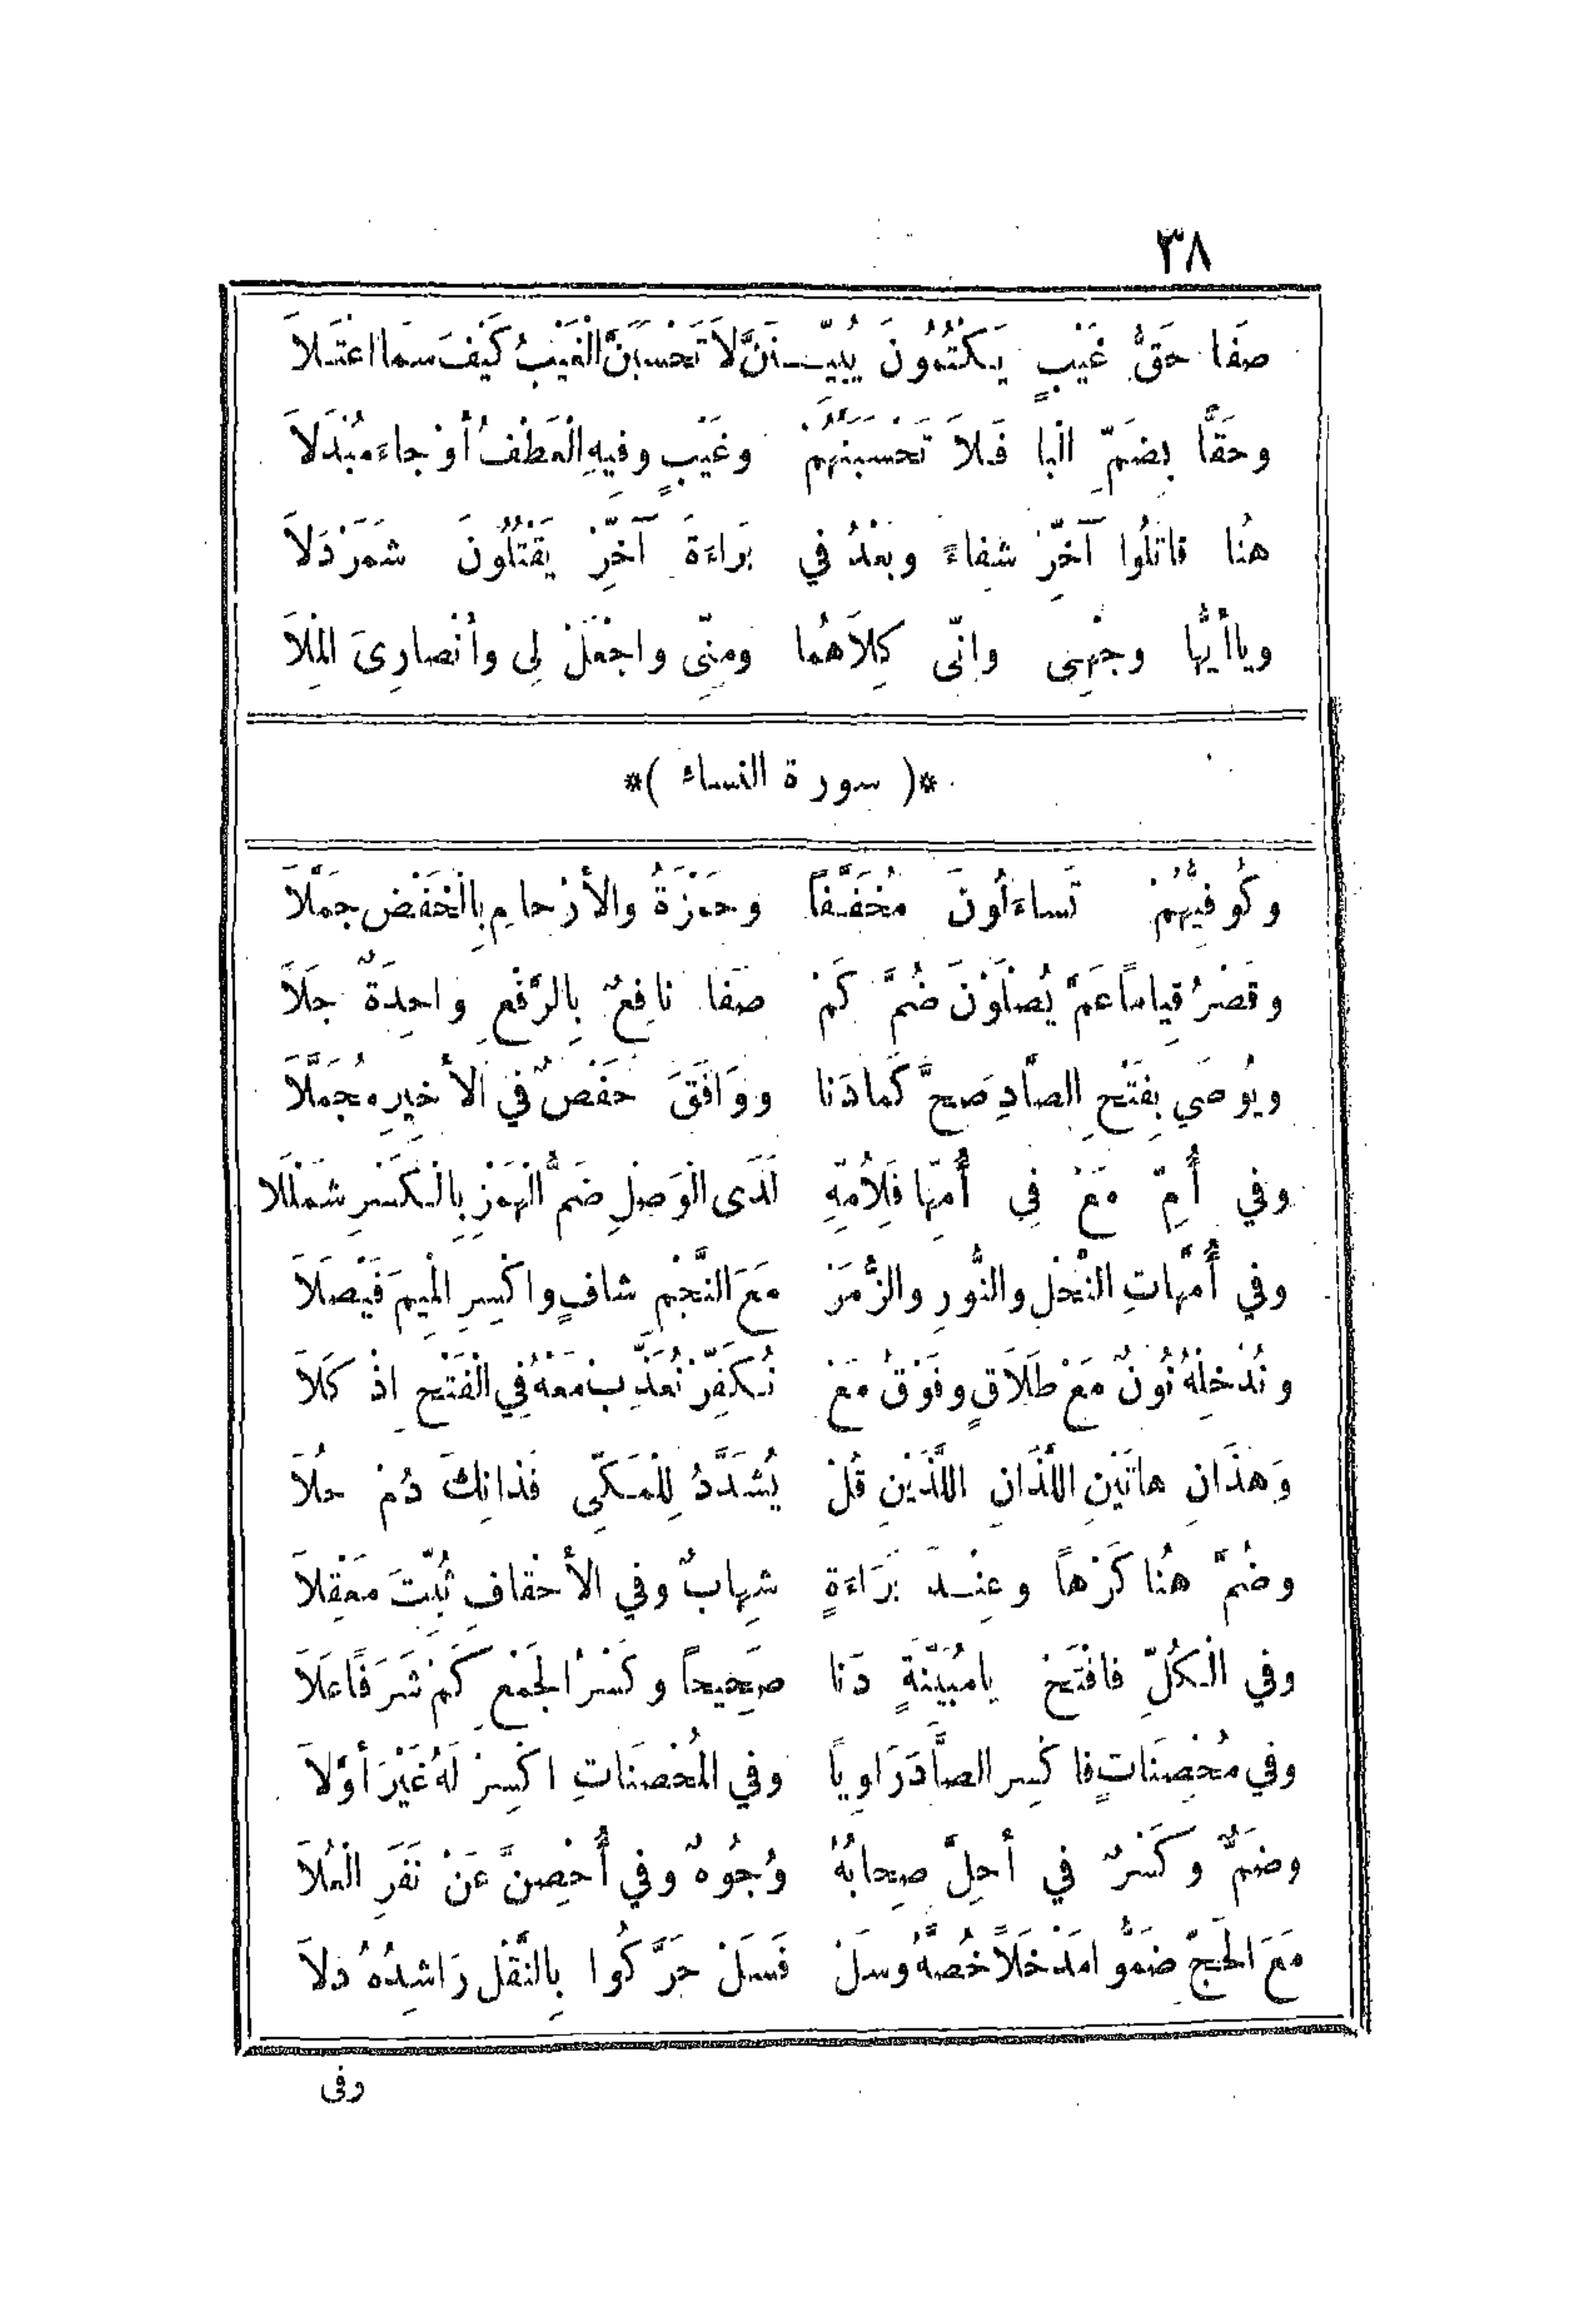 ٣٨
صَفَا حَقُّ غَيْبٍ يَكْتُمُونَ يُبَيِّنُنَّ لاَ تَحْسَبَنَّ الْغَيْبُ كَيْفَ سَمَا اعْتَلاَ
وحَقًّا بِضَمِّ الْبا فَلاَ تَحْسَبَنَّهُمْ وغَيْبٍ وفِيهِ الْعَطْفُ أوْ جاءَ مُبْدَلاَ
هُنا قاتَلُوا آخِّرْ شِفاءً وبَعْدُ في بَراءَةَ آخِّرْ يَقْتُلُونَ شَمَرْدَلاَ
وياأيُّها وجْهِى وإنِّى كِلاَهُما ومِنِّى واجْعَلْ لِى وأنْصارِىَ الْمِلاَ
*( سورة النساء )*
وكُوفِيُّهُمْ تَساءَلُونَ مُخَفَّفاً وحَمْزَةُ والأرْحامِ بِالْخَفْضِ جَمَّلاَ
وقَصْرُ قِياماً عَمَّ يُصْلَوْنَ ضُمَّ كَمْ صَفَا نافِعٌ بِالرَّفْعِ واحِدَةٌ جلَاَ
ويُوصَي بِفَتْحِ الصَّادِ صَحَّ كَمادَنا ووَافَقَ حَفْصٌ في الأخيرِ مُجَمَّلاَ
وفي أُمِّ مَعْ فِي أُمِّها فَلِأُمِّهِ لَدَى الْوَصْلِ ضَمُّ الْهَمْزِ بِالْكَسْرِ شَمْلَلاَ
وفي أُمَّهاتِ النَّحْل والنُّورِ والزُّمَرْ مَعَ النَّجْمِ شافٍ واكْسِرِ الْمِيمَ فَيْصَلاَ
ونُدْخِلْهُ نُونٌ مَعْ طَلَاقٍ وفَوْقُ مَعْ نُكَفِّرْ نُعَذِّبْ مَعْهُ فِي الْفَتْحِ إذْ كَلاَ
وَهذَانِ هاتَيْنِ اللَّذَانِ اللَّذَيْنِ قُلْ يُشَدَّدُ لِلْمَكِّى فَذانِكَ دُمْ حُلاَ
وضُمَّ هُنا كَرْهاً وعِنْدَ بَرَاءَةٍ شِهابٌ وفي الأحْقافِ ثُبِّتَ مَعْقِلاَ
وفي الْكُلِّ فافْتَحْ يا مُبَيِّنَةٍ دَنا صَحِيحاً وكَسْرُ الْجَمْعِ كَمْ شَرَفًا عَلاَ
وفي مُحْصِنَاتٍ فاكْسِرِ الصَّادَ رَاوِياً وفي الْمُحْصَنَاتِ اكْسِرْ لَهُ غَيْرَ أوَّلاَ
وضَمٌّ وكَسْرٌ في أحِلَّ صِحابُهُ وُجُوهٌ وفي أُحْصِنَّ عَنْ نَفَرِ الْعُلاَ
مَعَ الْحَجِّ ضَمُّوا مَدْخَلاً خُصَّهُ وسَلْ فَسَلْ حَرَّكُوا بِالنَّقْلِ رَاشِدُهُ دلاَ
وفى